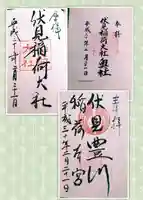 奉拝
伏見稲荷大社奥社
平成三十年三月二十一日
伏見稲荷大社
平成三十年三月二十一日
伏見豊川
稲荷本宮
平成三十年三月二十一日